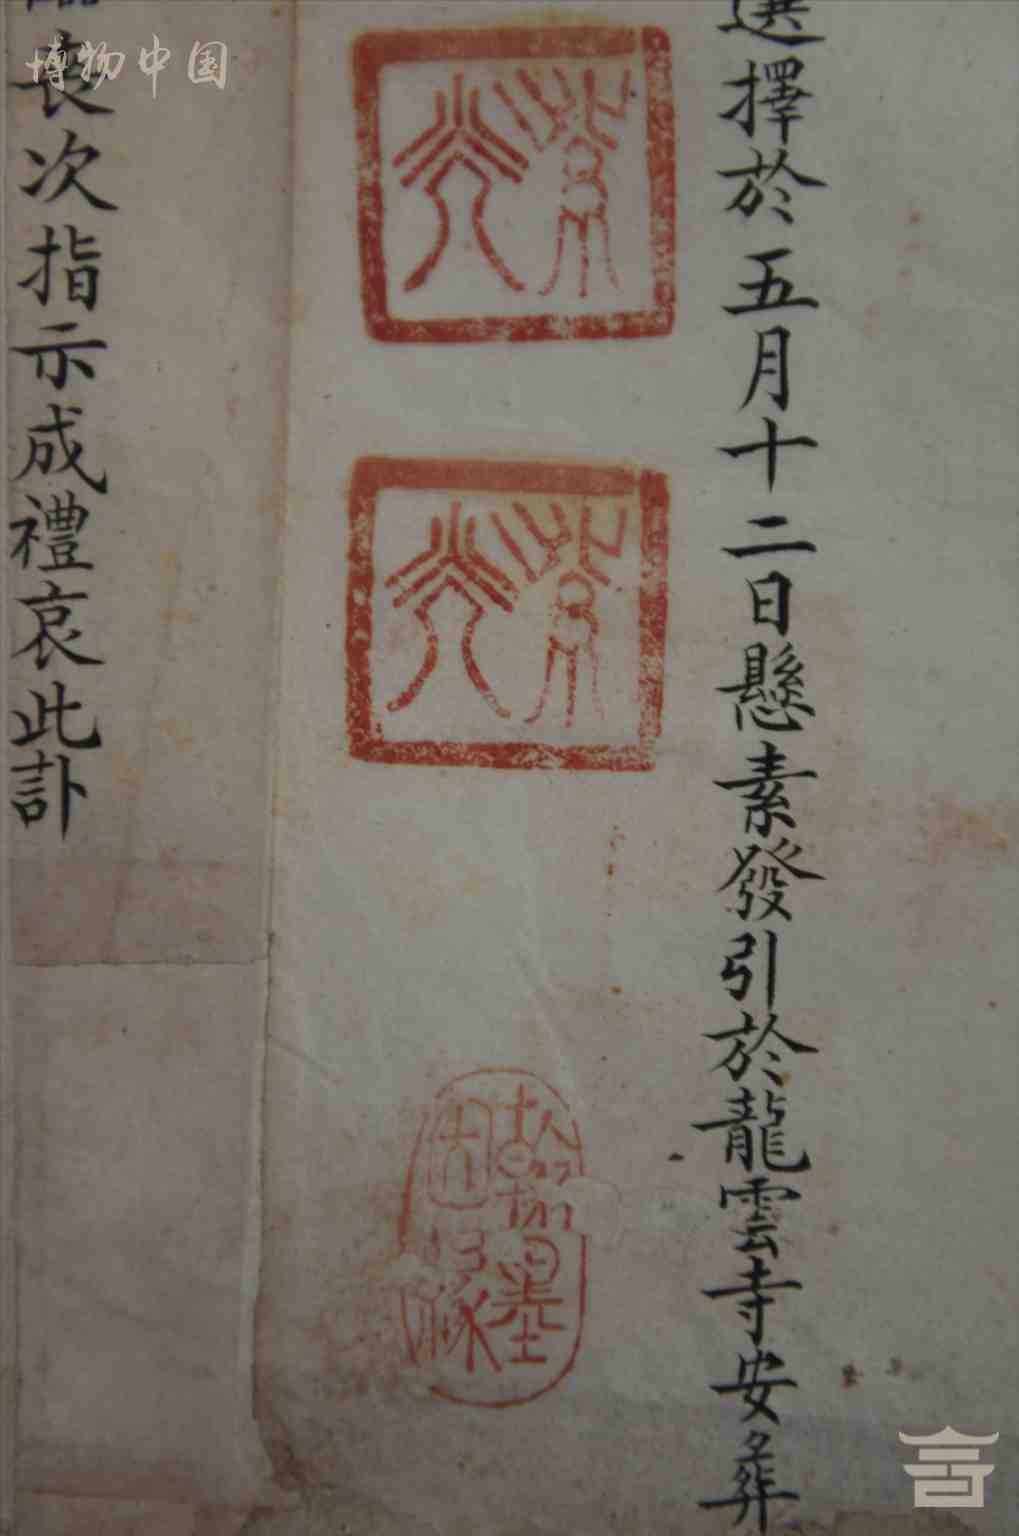 選擇於五月十二日懸素發引於龍雲寺安葬
翰墨因緣
喪次指示成禮哀此訃
博物中国